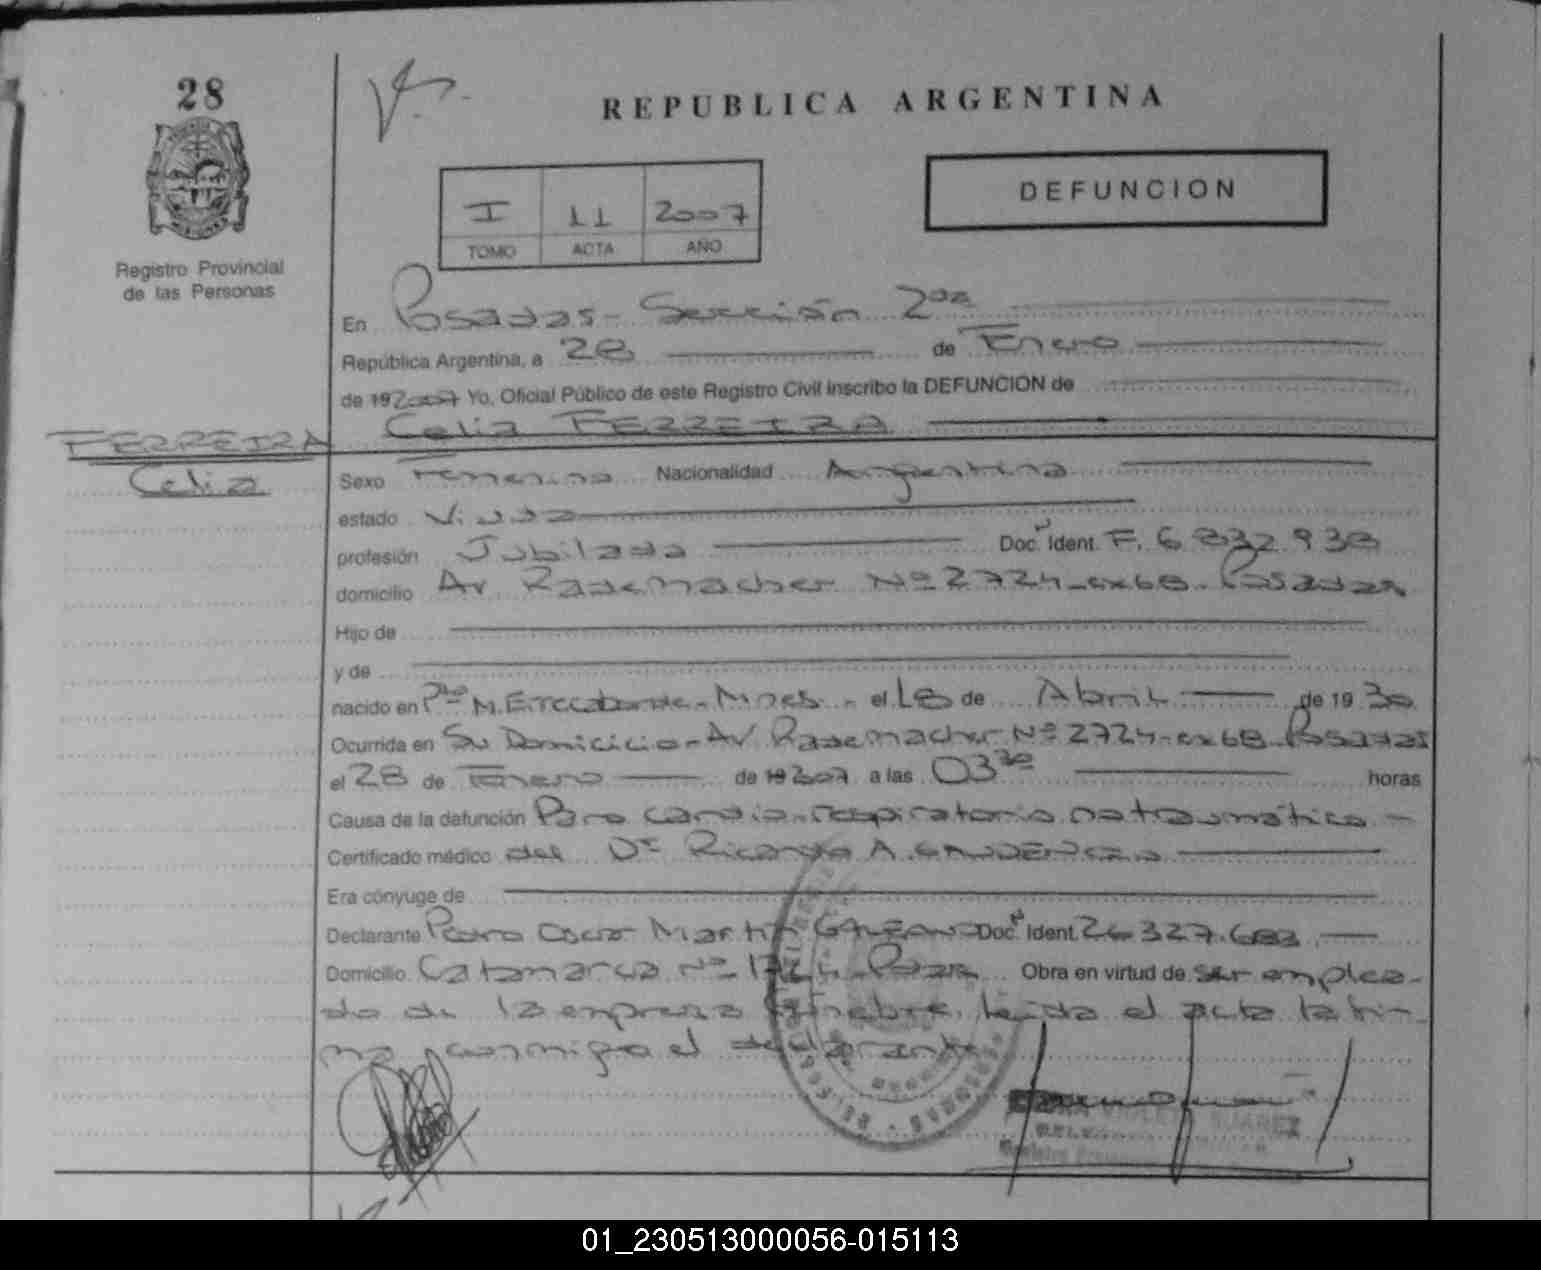 28
REPUBLICA ARGENTINA
I 11 2007
TOMO ACTA AÑO
DEFUNCION
Registro Provincial
de las Personas
En Posadas - Sección 2da
República Argentina, a 28 de Enero
de 19 2007 Yo, Oficial Público de este Registro Civil inscribo la DEFUNCION de
FERREIRA Celia FERREIRA
Celia
Sexo Femenino Nacionalidad Argentina
estado Viuda
profesión Jubilada Doc. Ident. F. 6.832.938
domicilio Av Rademacher Nº 2724 - ex 68 - Posadas
Hijo de
y de
nacido en Pto M. - Mnes - el 18 de Abril de 19 30
Ocurrida en Su Domicicio - Av Rademacher Nº 2724 - ex 68 - Posadas
el 28 de Enero de 19 2007 a las 03 30 horas
Causa de la defunción Paro cardio-respiratorio no traumático -
Certificado médico del Dr Ricardo A. GAUDENCIO
Era cónyuge de
Declarante Pedro Oscar Martin GALEANO Doc. Ident. 26.327.683
Domicilio Catamarca Nº Obra en virtud de ser emplea-
do de la empresa fúnebre, leida el acta la fir-
ma conmigo el declarante
SUAREZ
01_230513000056-015113